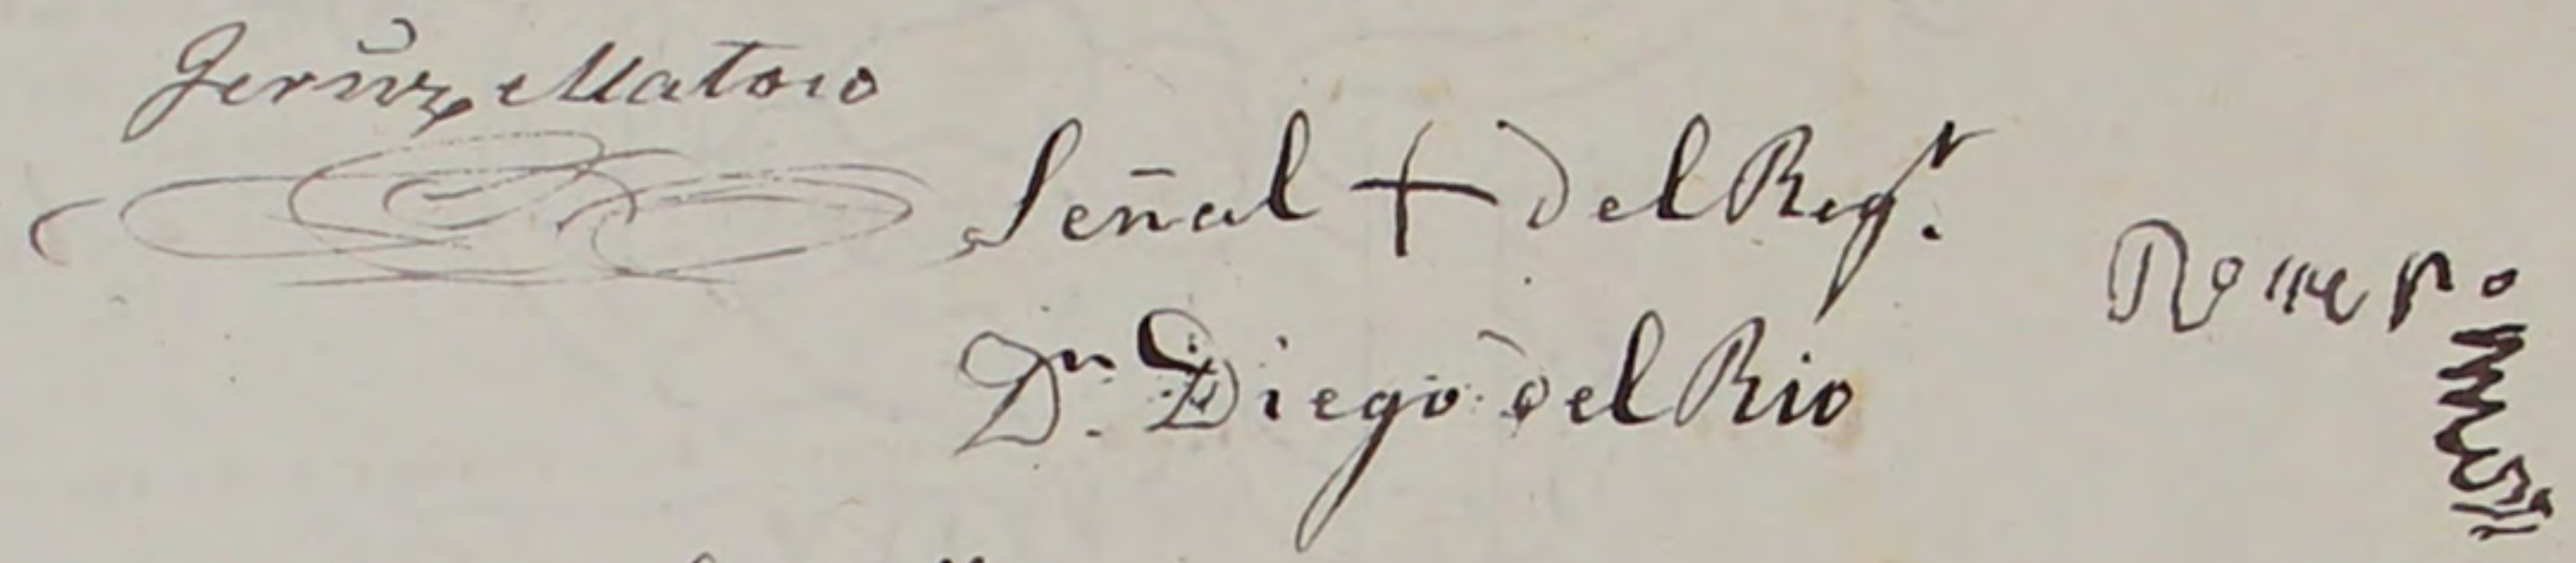 Matoso
Señal + del Regr.
Dn. Diego del Rio
Romero